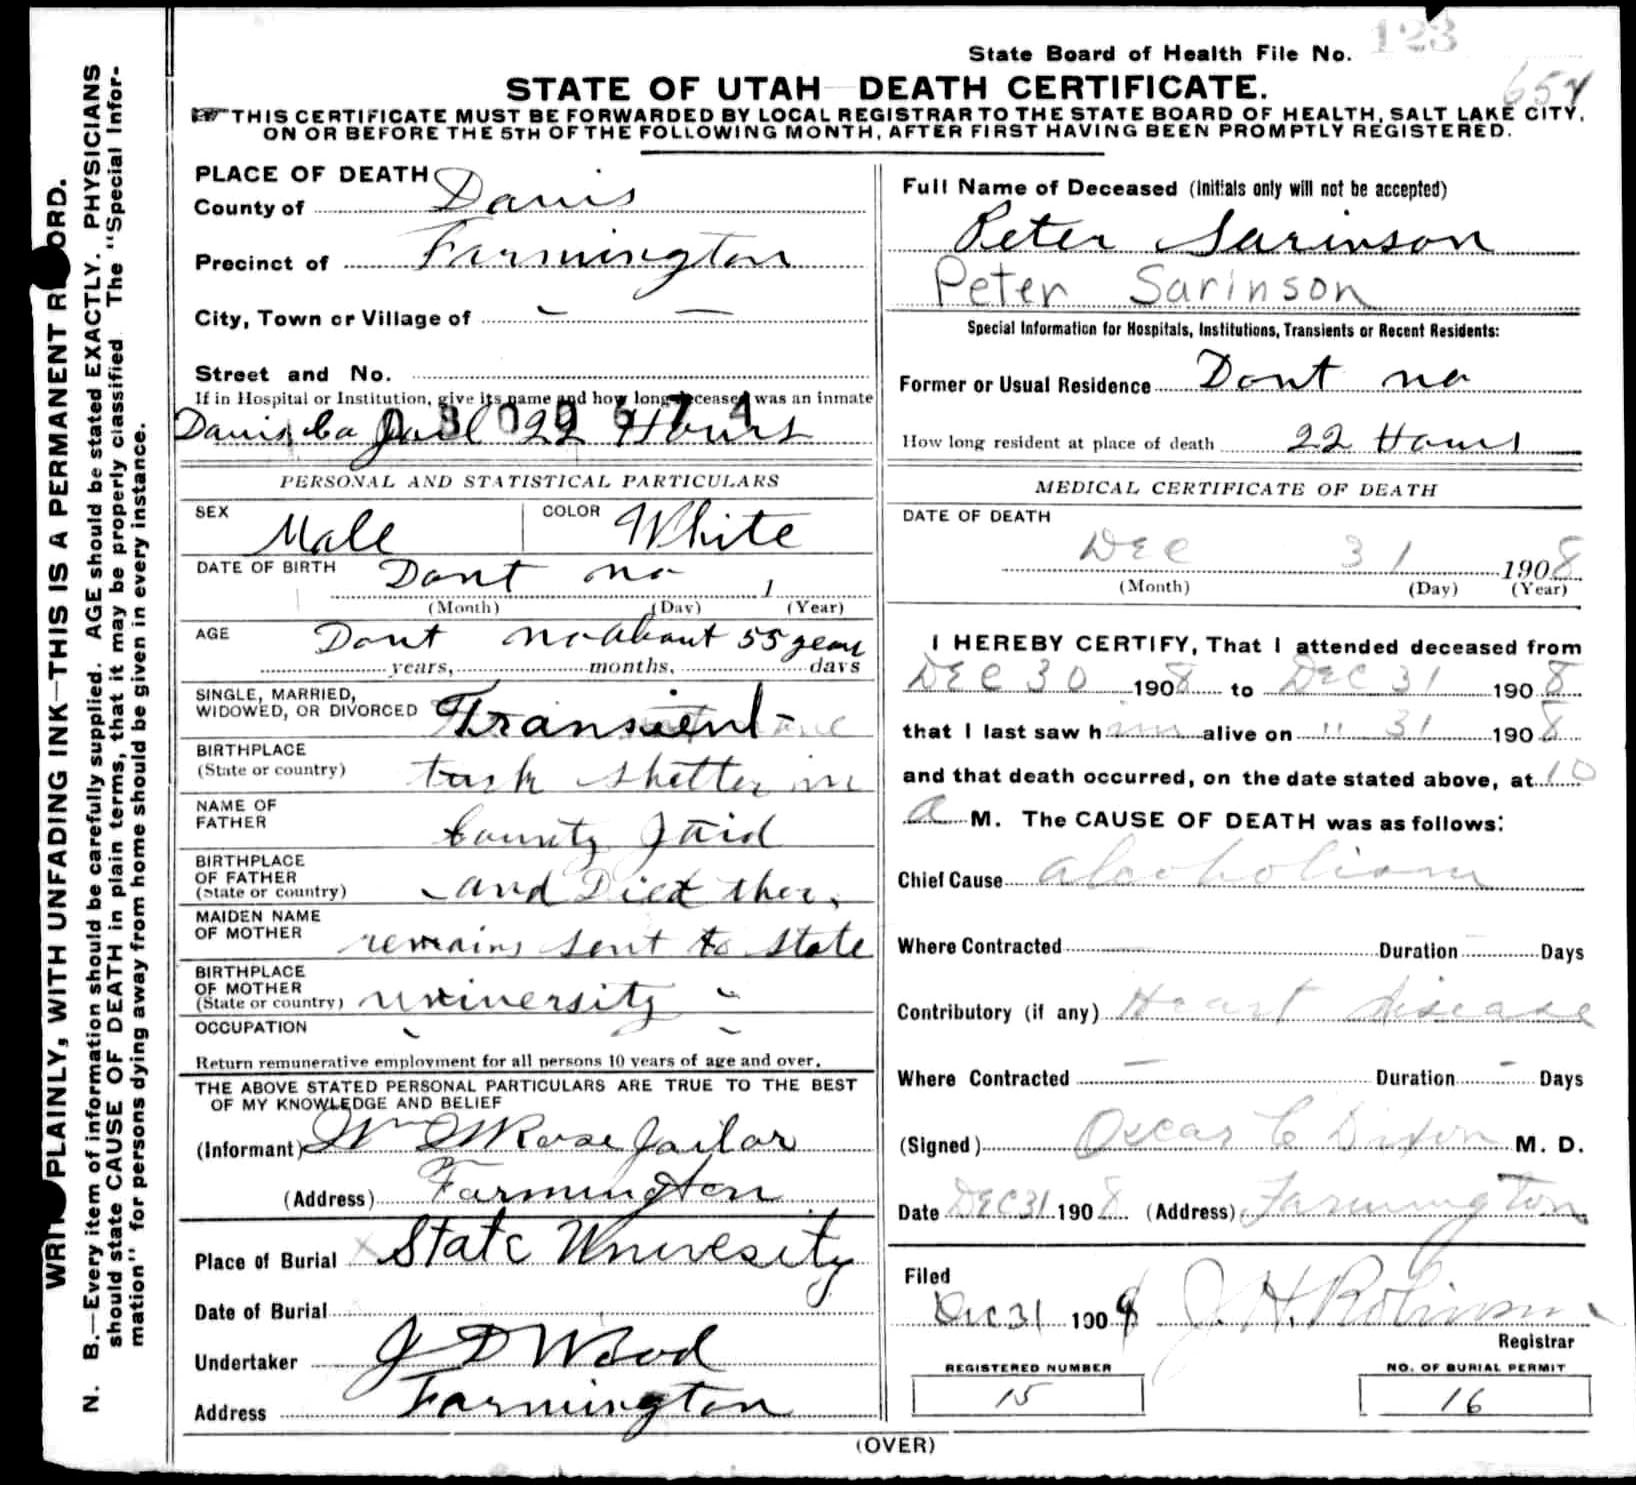 State Board of Health File No. 123
STATE OF UTAH—DEATH CERTIFICATE.
654
THIS CERTIFICATE MUST BE FORWARDED BY LOCAL REGISTRAR TO THE STATE BOARD OF HEALTH, SALT LAKE CITY,
ON OR BEFORE THE 5TH OF THE FOLLOWING MONTH, AFTER FIRST HAVING BEEN PROMPTLY REGISTERED.
WRITE PLAINLY, WITH UNFADING INK—THIS IS A PERMANENT RECORD.
N. B.—Every item of information should be carefully supplied. AGE should be stated EXACTLY. PHYSICIANS
should state CAUSE OF DEATH in plain terms, that it may be properly classified The "Special Infor-
mation" for persons dying away from home should be given in every instance.
PLACE OF DEATH
County of Davis
Precinct of Farmington
City, Town or Village of – –
Street and No.
If in Hospital or Institution, give its name and how long deceased was an inmate
Davis Co Jail 22 Hours
PERSONAL AND STATISTICAL PARTICULARS
SEX Male COLOR White
DATE OF BIRTH Dont no 1
(Month) (Day) (Year)
AGE Dont no About 55 years
years, months, days
SINGLE, MARRIED,
WIDOWED, OR DIVORCED Transient
BIRTHPLACE
(State or country) tuck shelter in
NAME OF
FATHER County Jaid
BIRTHPLACE
OF FATHER
(State or country) and Died ther,
MAIDEN NAME
OF MOTHER remains sent to State
BIRTHPLACE
OF MOTHER
(State or country) university
OCCUPATION
Return remunerative employment for all persons 10 years of age and over.
THE ABOVE STATED PERSONAL PARTICULARS ARE TRUE TO THE BEST
OF MY KNOWLEDGE AND BELIEF
(Informant) Wm Rose Jailor
(Address) Farmington
Place of Burial State Univesity
Date of Burial
Undertaker J D Wood
Address Farmington
Full Name of Deceased (Initials only will not be accepted)
Peter Sarinson
Peter Sarinson
Special Information for Hospitals, Institutions, Transients or Recent Residents:
Former or Usual Residence Dont no
How long resident at place of death 22 Hours
MEDICAL CERTIFICATE OF DEATH
DATE OF DEATH
Dec 31 1908
(Month) (Day) (Year)
I HEREBY CERTIFY, That I attended deceased from
Dec 30 1908 to Dec 31 1908
that I last saw him alive on " 31 1908
and that death occurred, on the date stated above, at 10
a M. The CAUSE OF DEATH was as follows:
Chief Cause alcoholism
Where Contracted Duration Days
Contributory (if any) Heart disease
Where Contracted – Duration – Days
(Signed) Oscar C Dixon M. D.
Date Dec 31 1908 (Address) Farmington
Filed
Dec 31 1908 J. H. Robinson
Registrar
REGISTERED NUMBER
15
NO. OF BURIAL PERMIT
16
(OVER)